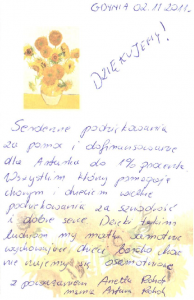 GDYNIA 02.11.2011r.
DZIĘKUJEMY!
Serdeczne podziękowania
za pomoc i dofinansowanie
dla Antonka do 1% procenta.
Wszystkim którzy pomagają
chorym i dzieciom wielkie
podziękowania za szczodrość
i dobre serce. Dzięki takim
ludziom my matki samotnie
wychowujące dzieci bardzo chore
nie czujemy się osamotnione
z poważaniem Anetta
mama Antoni